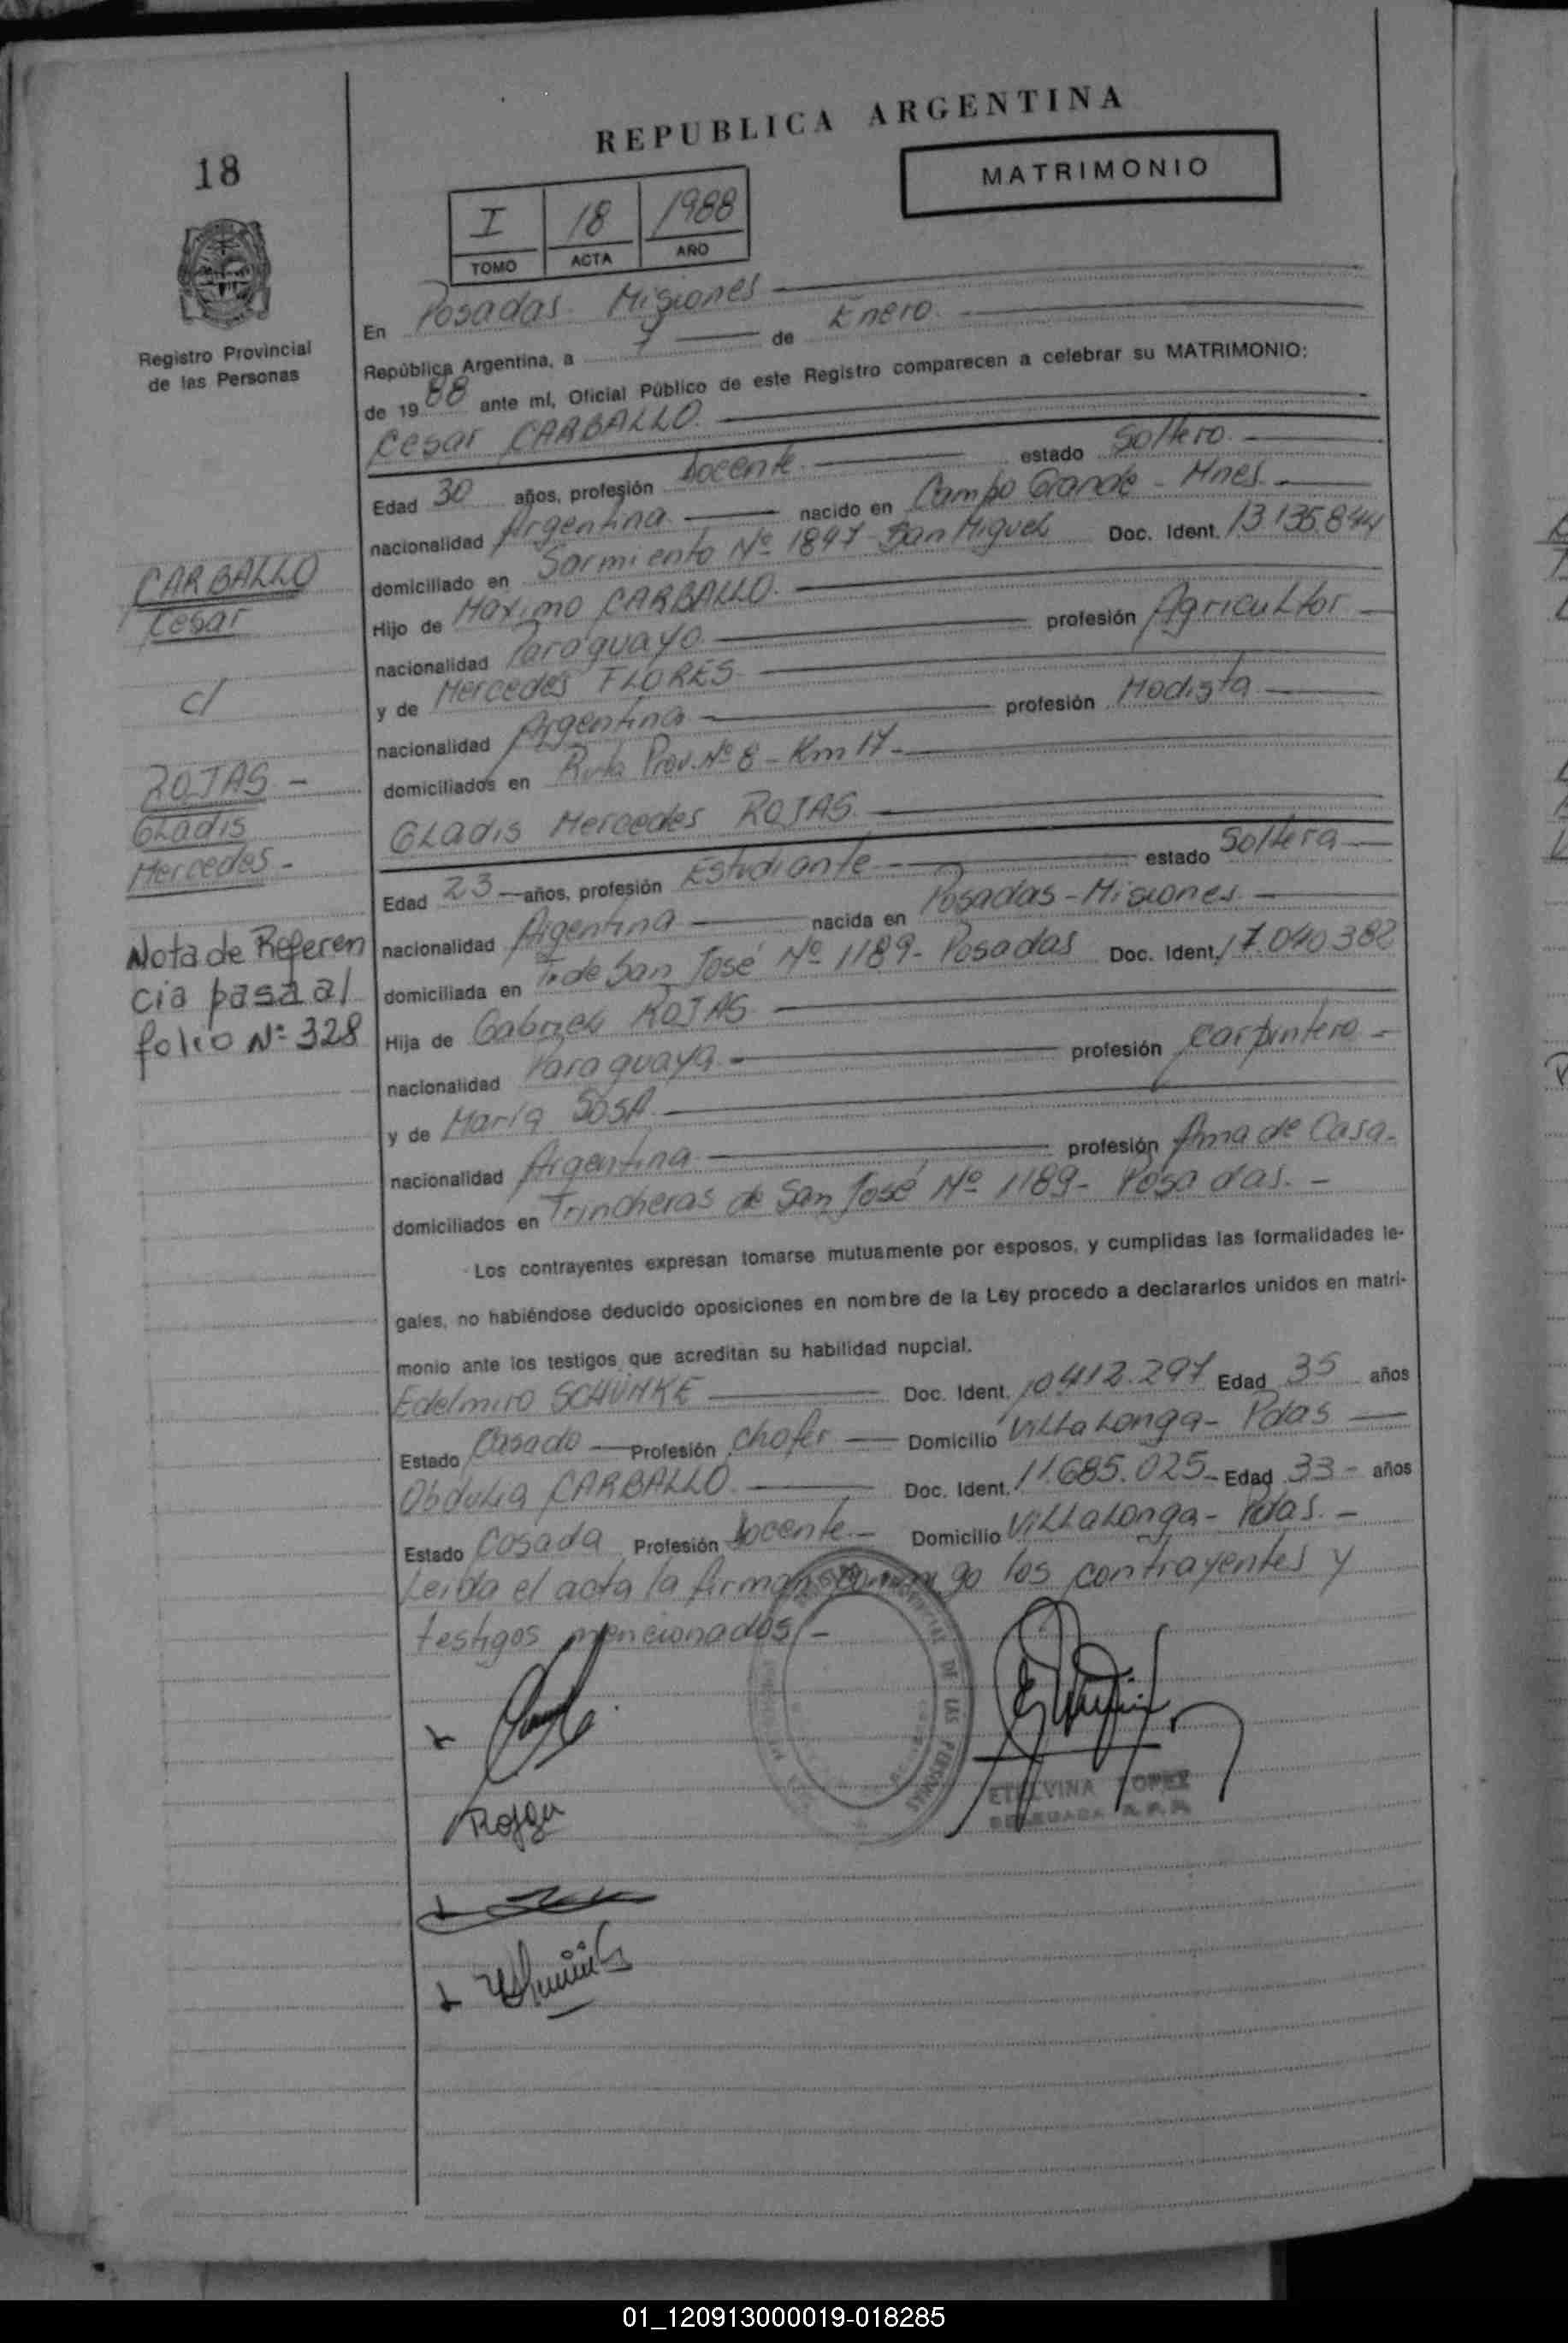 REPUBLICA ARGENTINA
18
MATRIMONIO
I 18 1988
TOMO ACTA AÑO
Registro Provincial
de las Personas
En Posadas - Misiones
República Argentina, a 7 de Enero.
de 1988 ante mí, Oficial Público de este Registro comparecen a celebrar su MATRIMONIO:
Cesar CARBALLO.
Edad 30 años, profesión Docente. estado Soltero.
nacionalidad Argentina nacido en Campo Grande - Mnes.
domiciliado en Sarmiento Nº 1847 - San Miguel Doc. Ident. 13.135.844
Hijo de Maximo CARBALLO.
nacionalidad Paraguayo profesión Agricultor
y de Mercedes FLORES
nacionalidad Argentina profesión Modista
domiciliados en Ruta Prov. Nº 8 - Km 17 -
GLadis Mercedes ROJAS.
Edad 23 años, profesión Estudiante estado Soltera
nacionalidad Argentina nacida en Posadas - Misiones.
domiciliada en Tr. de San José Nº 1189 - Posadas Doc. Ident. 17.040.382
Hija de Gabriel ROJAS
nacionalidad Paraguaya profesión carpintero -
y de María SOSA
nacionalidad Argentina profesión Ama de Casa -
domiciliados en Trincheras de San José Nº 1189 - Posadas. -
Los contrayentes expresan tomarse mutuamente por esposos, y cumplidas las formalidades le-
gales, no habiéndose deducido oposiciones en nombre de la Ley procedo a declararlos unidos en matri-
monio ante los testigos que acreditan su habilidad nupcial.
Edelmiro SCHÜNKE Doc. Ident. 10.412.297 Edad 35 años
Estado Casado Profesión Chofer Domicilio ViLLa Longa - Pdas
Obdulia CARBALLO. Doc. Ident. 11.685.025 - Edad 33 - años
Estado Casada Profesión Docente. - Domicilio ViLLa Longa - Pdas. -
Leida el acta la firman conmigo los contrayentes y
testigos mencionados. -
CARBALLO
Cesar
c/
ROJAS -
GLadis
Mercedes -
Nota de Referen
cia pasa al
folio Nº 328
DE LAS PERSONAS
Rojas
ETELVINA LOPEZ
DELEGADA R. P. P.
01_120913000019-018285